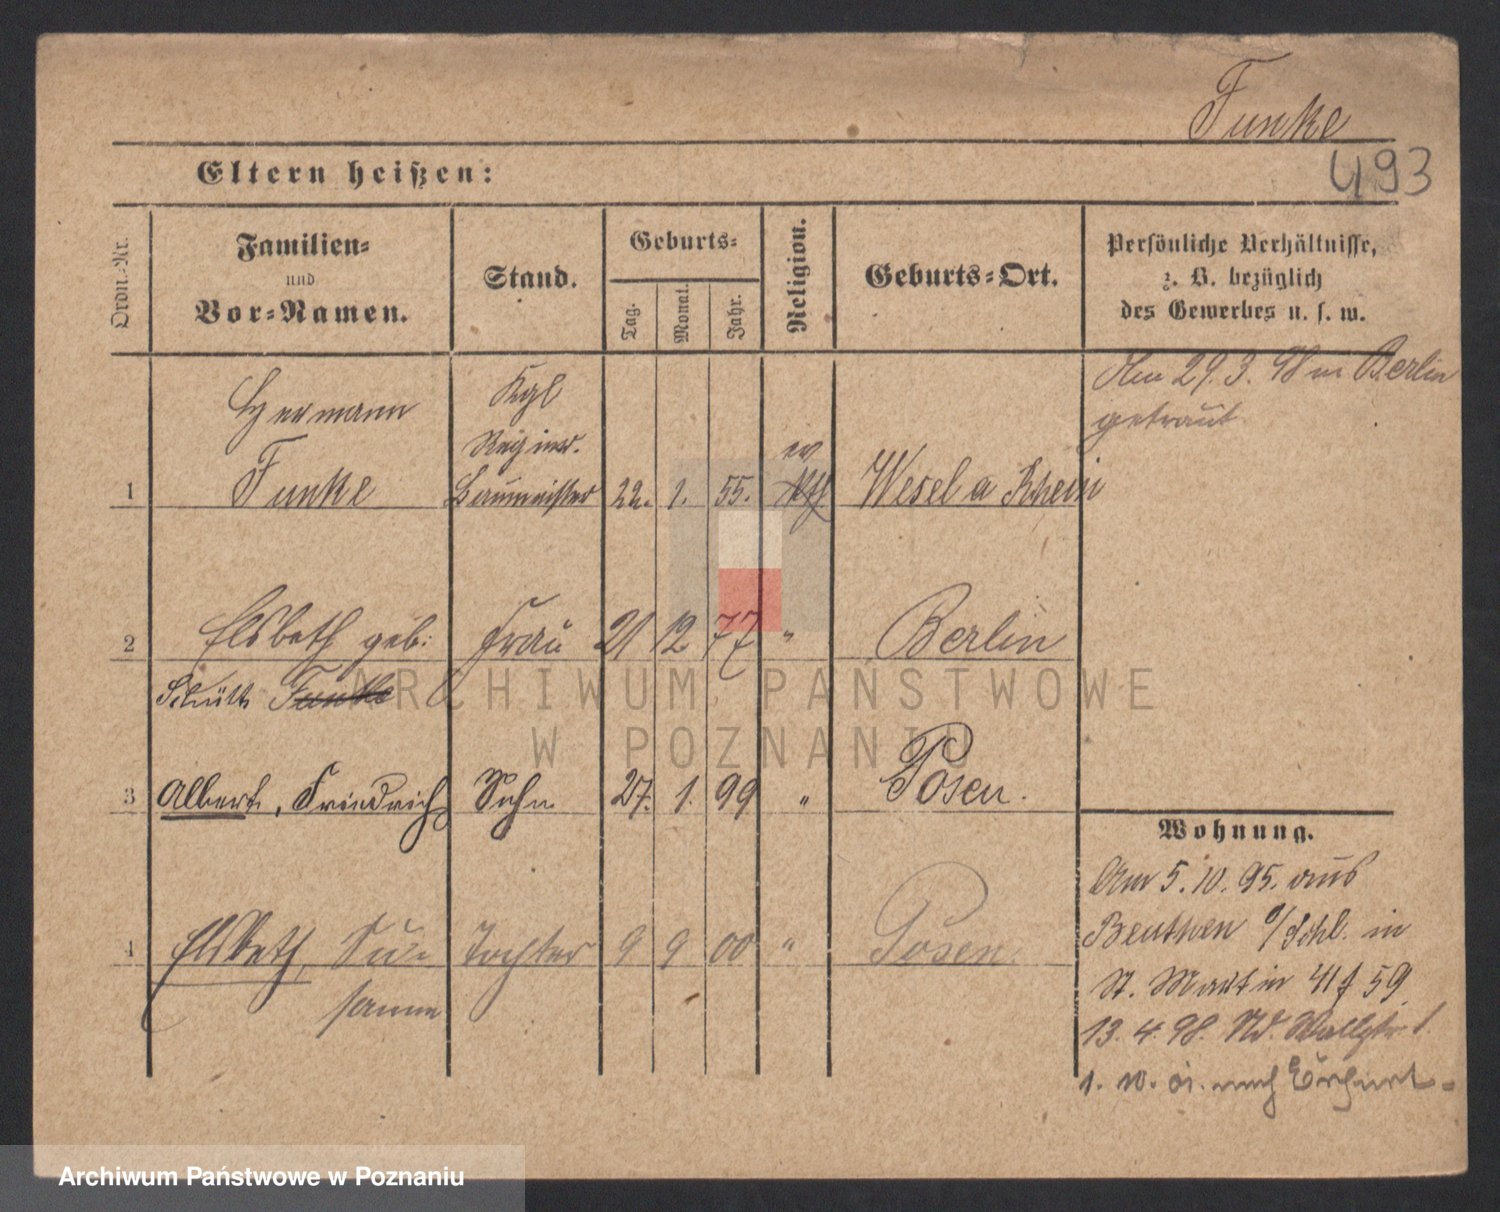 Funke
493
Eltern heißen:
Ordn.-Nr.
Familien-
und
Vor-Namen.
Stand.
Geburts-
Tag.
Monat.
Jahr.
Religion.
Geburts-Ort.
Persönliche Verhältnisse,
z. B. bezüglich
des Gewerbes u. s. w.
Am 29. 3. 98 in Berlin
getraut.
Hermann
Kgl
Regier.
ev
1 Funke Baumeister 22. 1. 55. Wesel a Rhein
2 Elsbeth geb: Frau 21 12 77 " Berlin
Schütte Funke
3 Albert, Friedrich Sohn 27. 1. 99 " Posen.
4 Elsbeth, Su- Tochter 9 9 00 " Posen.
sanne
Wohnung.
Am 5. 10. 95. aus
Beuthen o/Schl. in
St. Martin 41 f 59
13. 4. 98. Nd. Wallstr. 1.
1. 10. 01. nach Erfurt
ARCHIWUM PAŃSTWOWE
W POZNANIU
Archiwum Państwowe w Poznaniu